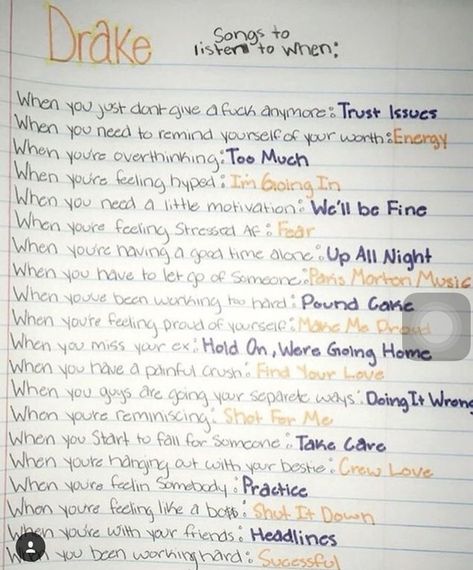 Drake
Songs to
listen to when:
When you just dont give a fuck anymore: Trust Issues
When you need to remind yourself of your worth: Energy
When you're overthinking: Too Much
When you're feeling hyped: I'm Going In
When you need a little motivation: We'll be Fine
When you're feeling stressed AF: Fear
When you're having a good time alone: Up All Night
When you have to let go of someone: Paris Morton Music
When you've been working too hard: Pound Cake
When you're feeling proud of yourself: Make Me Proud
When you miss your ex: Hold On, We're Going Home
When you have a painful crush: Find Your Love
When you guys are going your separate ways: Doing It Wrong
When you're reminiscing: Shot For Me
When you start to fall for someone: Take Care
When you're hanging out with your bestie: Crew Love
When you're feelin somebody: Practice
When you're feeling like a bo$$: Shut It Down
When you're with your friends: Headlines
When you been working hard: Sucessful